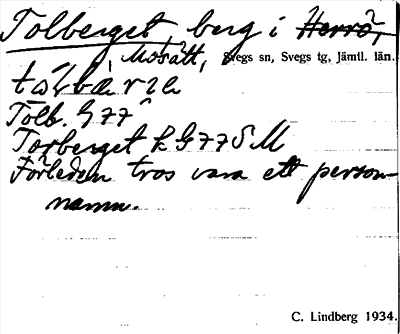 Tolberget, berg i Herrö,
Mosätt, Svegs sn, Svegs tg, Jämtl. län.
Tolb. G 77
Torberget L G 77 S M
Förleden tros vara ett person-
namn.
C. Lindberg 1934.